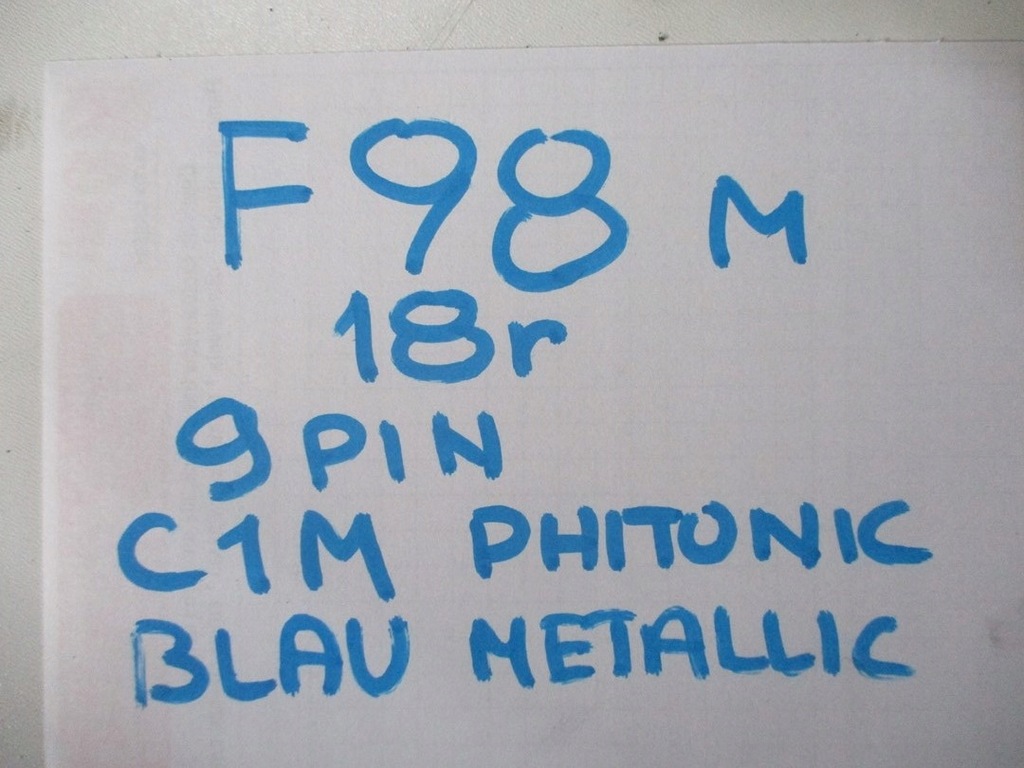 F98 M
18r
9 PIN
C1M PHITONIC
BLAU METALLIC